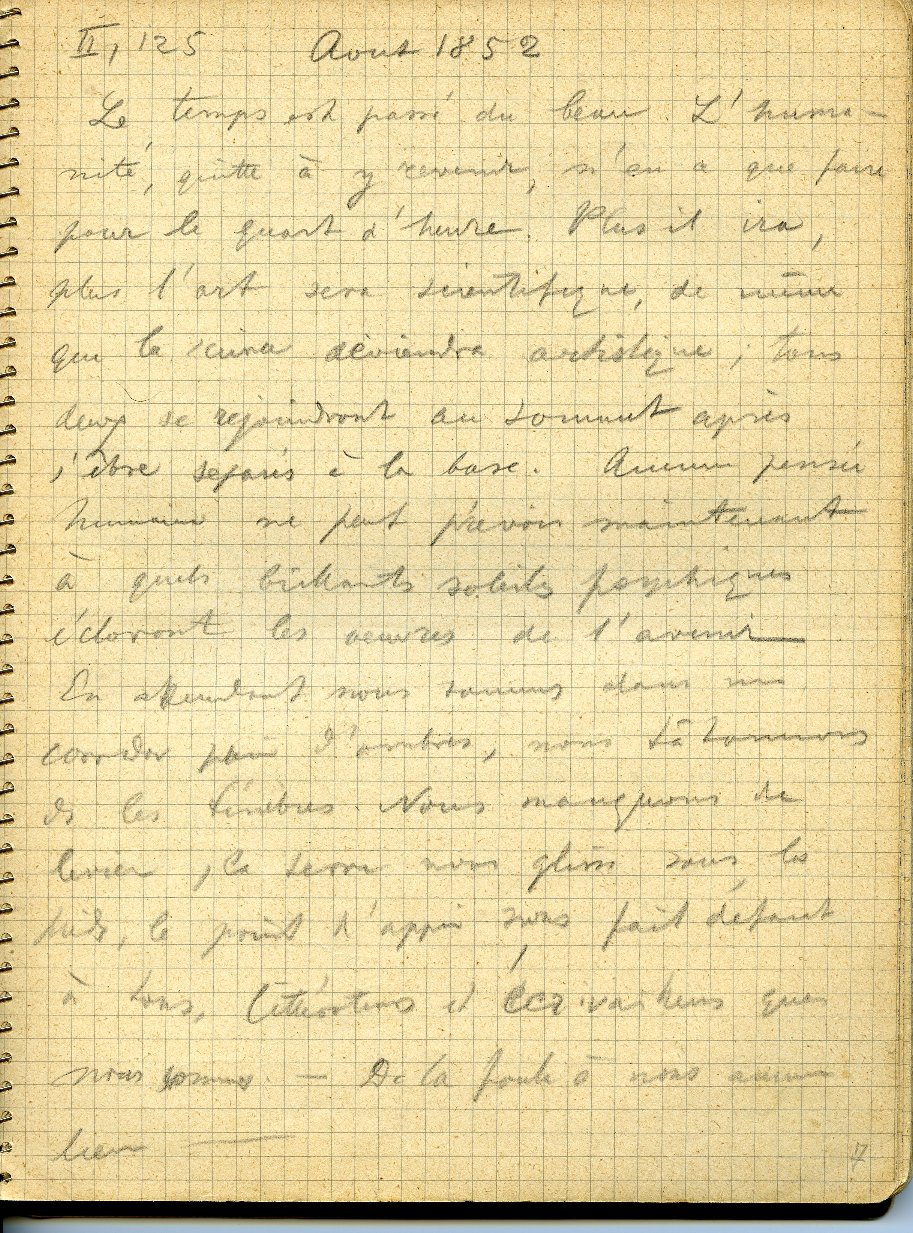 II, 125 Aout 1852
Le temps est passé du beau. L'huma-
nité, quitte à y revenir, n'en a que faire
pour le quart d'heure. Plus il ira,
plus l'art sera scientifique, de même
que la science deviendra artistique ; tous
deux se rejoindront au sommet après
s'être séparés à la base. Aucune pensée
humaine ne peut prévoir maintenant
à quels brillants soleils psychiques
écloront les oeuvres de l'avenir
En attendant nous sommes dans un
corridor plein d'ombres, nous tâtonnons
ds les ténèbres. Nous manquons de
levier, la terre nous glisse sous les
pieds, le point d'appui nous fait défaut
à tous, littérateurs et écrivailleurs que
nous sommes. — De la foule à nous aucun
lien —
7